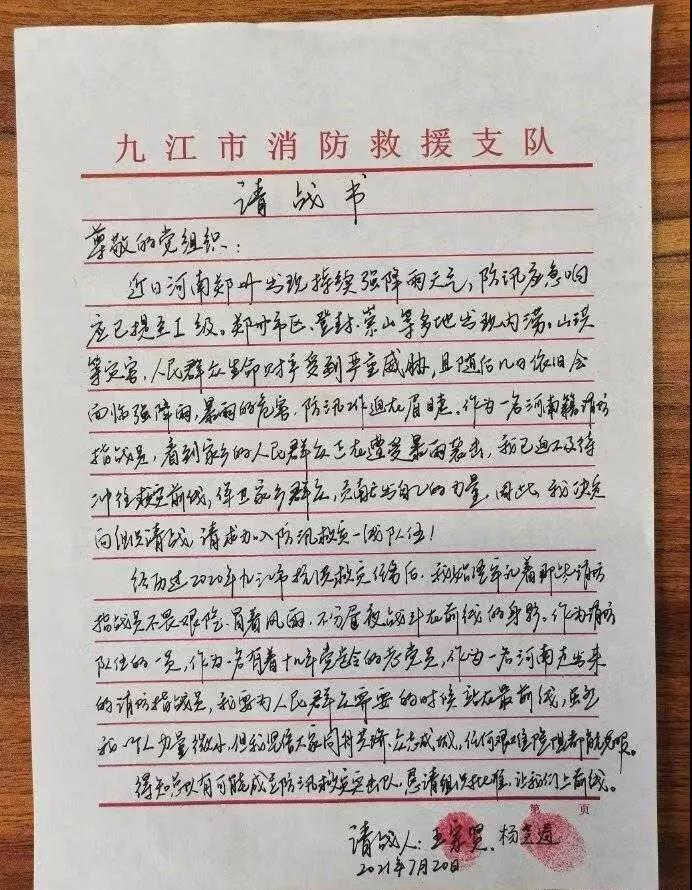 九江市消防救援支队
请战书
尊敬的党组织：
近日河南郑州出现持续强降雨天气，防汛应急响
应已提至Ⅰ级。郑州市区、登封、嵩山等多地出现内涝、山洪
等灾害，人民群众生命财产受到严重威胁，且随后几日依旧会
面临强降雨，暴雨的危害，防汛工作迫在眉睫。作为一名河南籍消防
指战员，看到家乡的人民群众正在遭受暴雨袭击，我已迫不及待
冲往救灾前线，保卫家乡群众，贡献出自己的力量，因此，我决定
向组织请战，请求加入防汛救灾一线队伍！
经历过2020年九江市抗洪救灾任务后，我始终牢记着那些消防
指战员不畏艰险、冒着风雨，不分昼夜战斗在前线的身影。作为消防
队伍的一员，作为一名有着十几年党龄的老党员，作为一名河南走出来
的消防指战员，我要为人民群众需要的时候站在最前线，虽然
我个人力量微小，但我坚信大家同舟共济、众志成城，任何艰难险阻都能克服。
得知总队有可能成立防汛救灾突击队，恳请组织批准，让我们上前线。
第 页
请战人：王家宽、杨
2021年7月20日